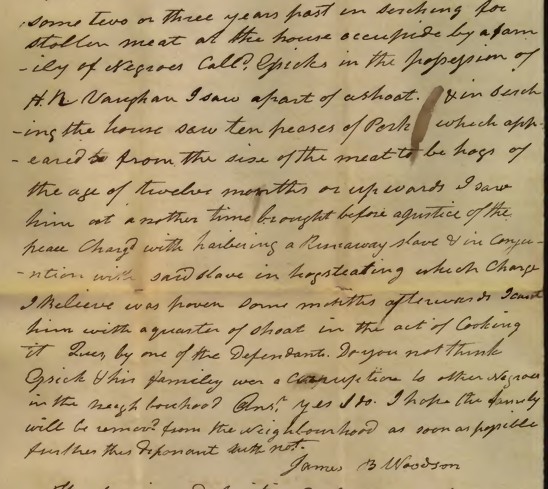 some two or three years past in serching for
stollen meat at the house occupide by a fam
-ily of Negroes Calld. Epsicks in the possession of
H. N. Vaughan I saw a part of a shoat. & in serch
-ing the house saw ten peases of Pork which app-
-eared to from the sise of the meat to be hogs of
the age of twelve months or upwards I saw
him at another time brought before a justice of the
peace Chargd with harbering a Runaway slave & in Conju-
-ntion with said slave in hogstealing which Charge
I believe was proven some months afterwards I caut
him with a quarter of shoat in the act of Cooking
it Ques. by one of the Defendants. Do you not think
Epsick & his familey wer a Corruption to other Negroes
in the neaghbourhood Ansr. yes I do. I hope the familey
will be removd from the Neighbourhood as soon as possible
further this deponant saith not.
James B Woodson